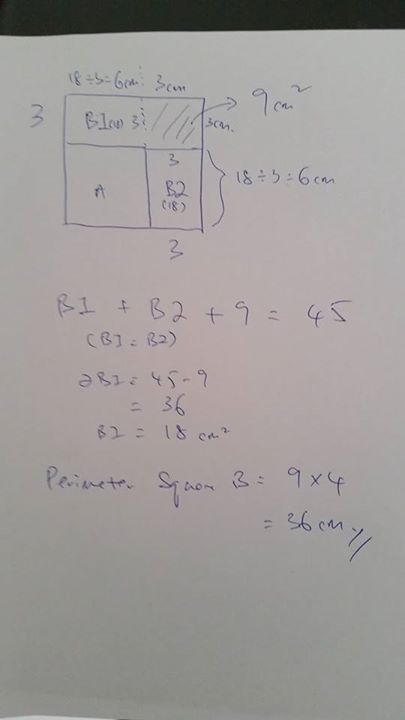 18÷3=6cm 3cm
9cm²
3 B1(18) 3 3cm.
3
A B2 18÷3=6cm
(18)
3
B1 + B2 + 9 = 45
(B1 = B2)
2B1 = 45-9
= 36
B1 = 18 cm²
Perimeter Square B = 9×4
= 36cm //